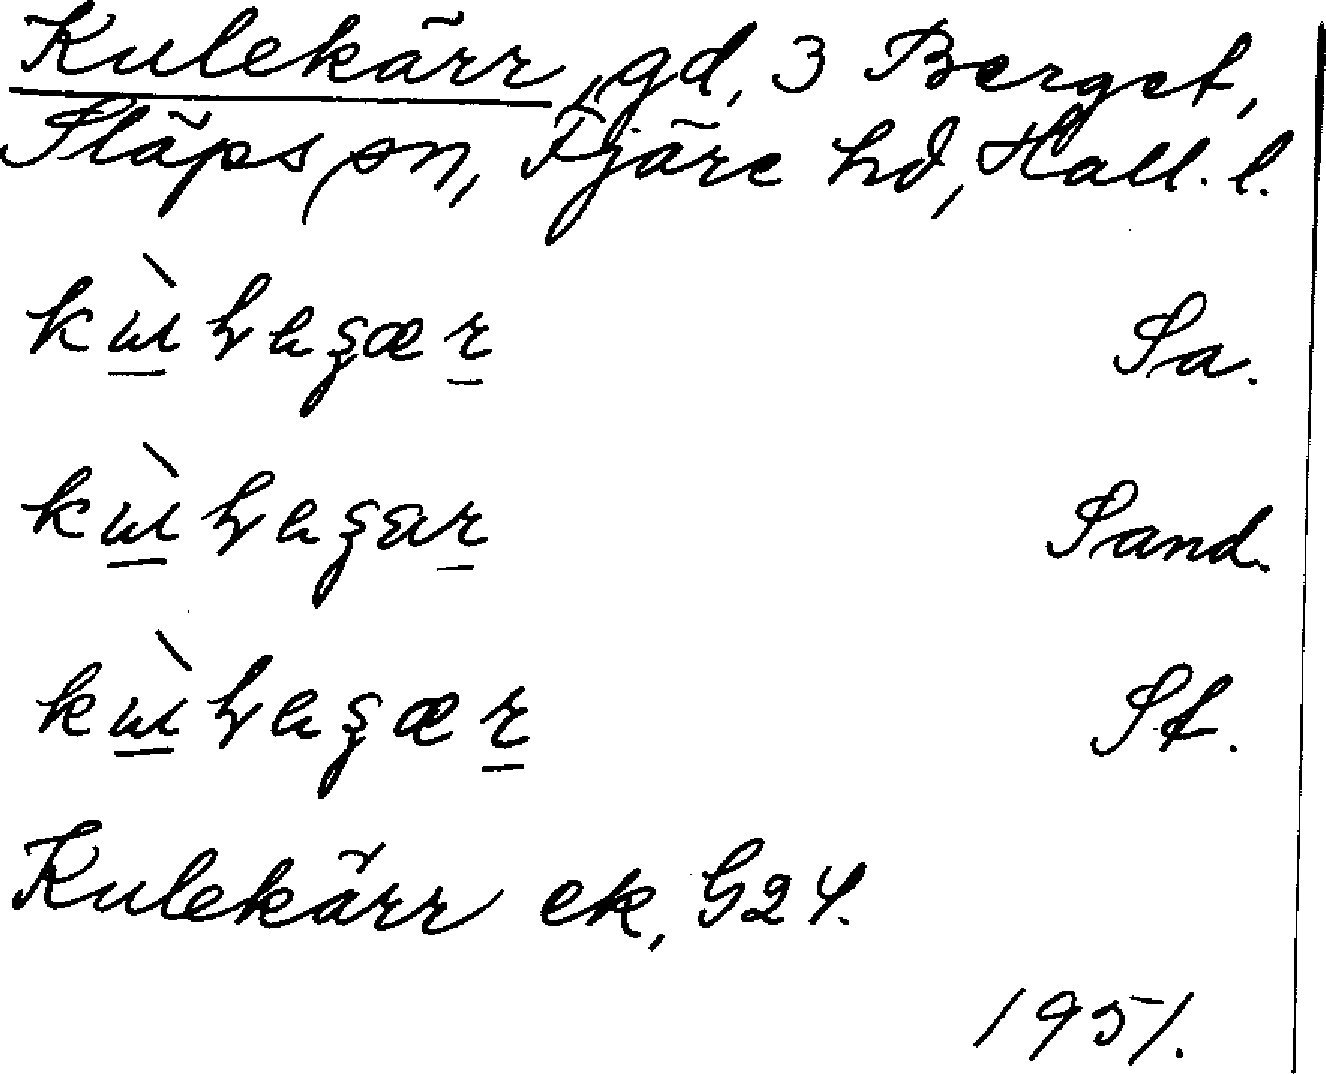 Kulekärr, gd, 3 Berget,
Släps sn, Fjäre hd, Hall. l.
Sa.
Sand.
St.
Kulekärr ek, G24.
1951.